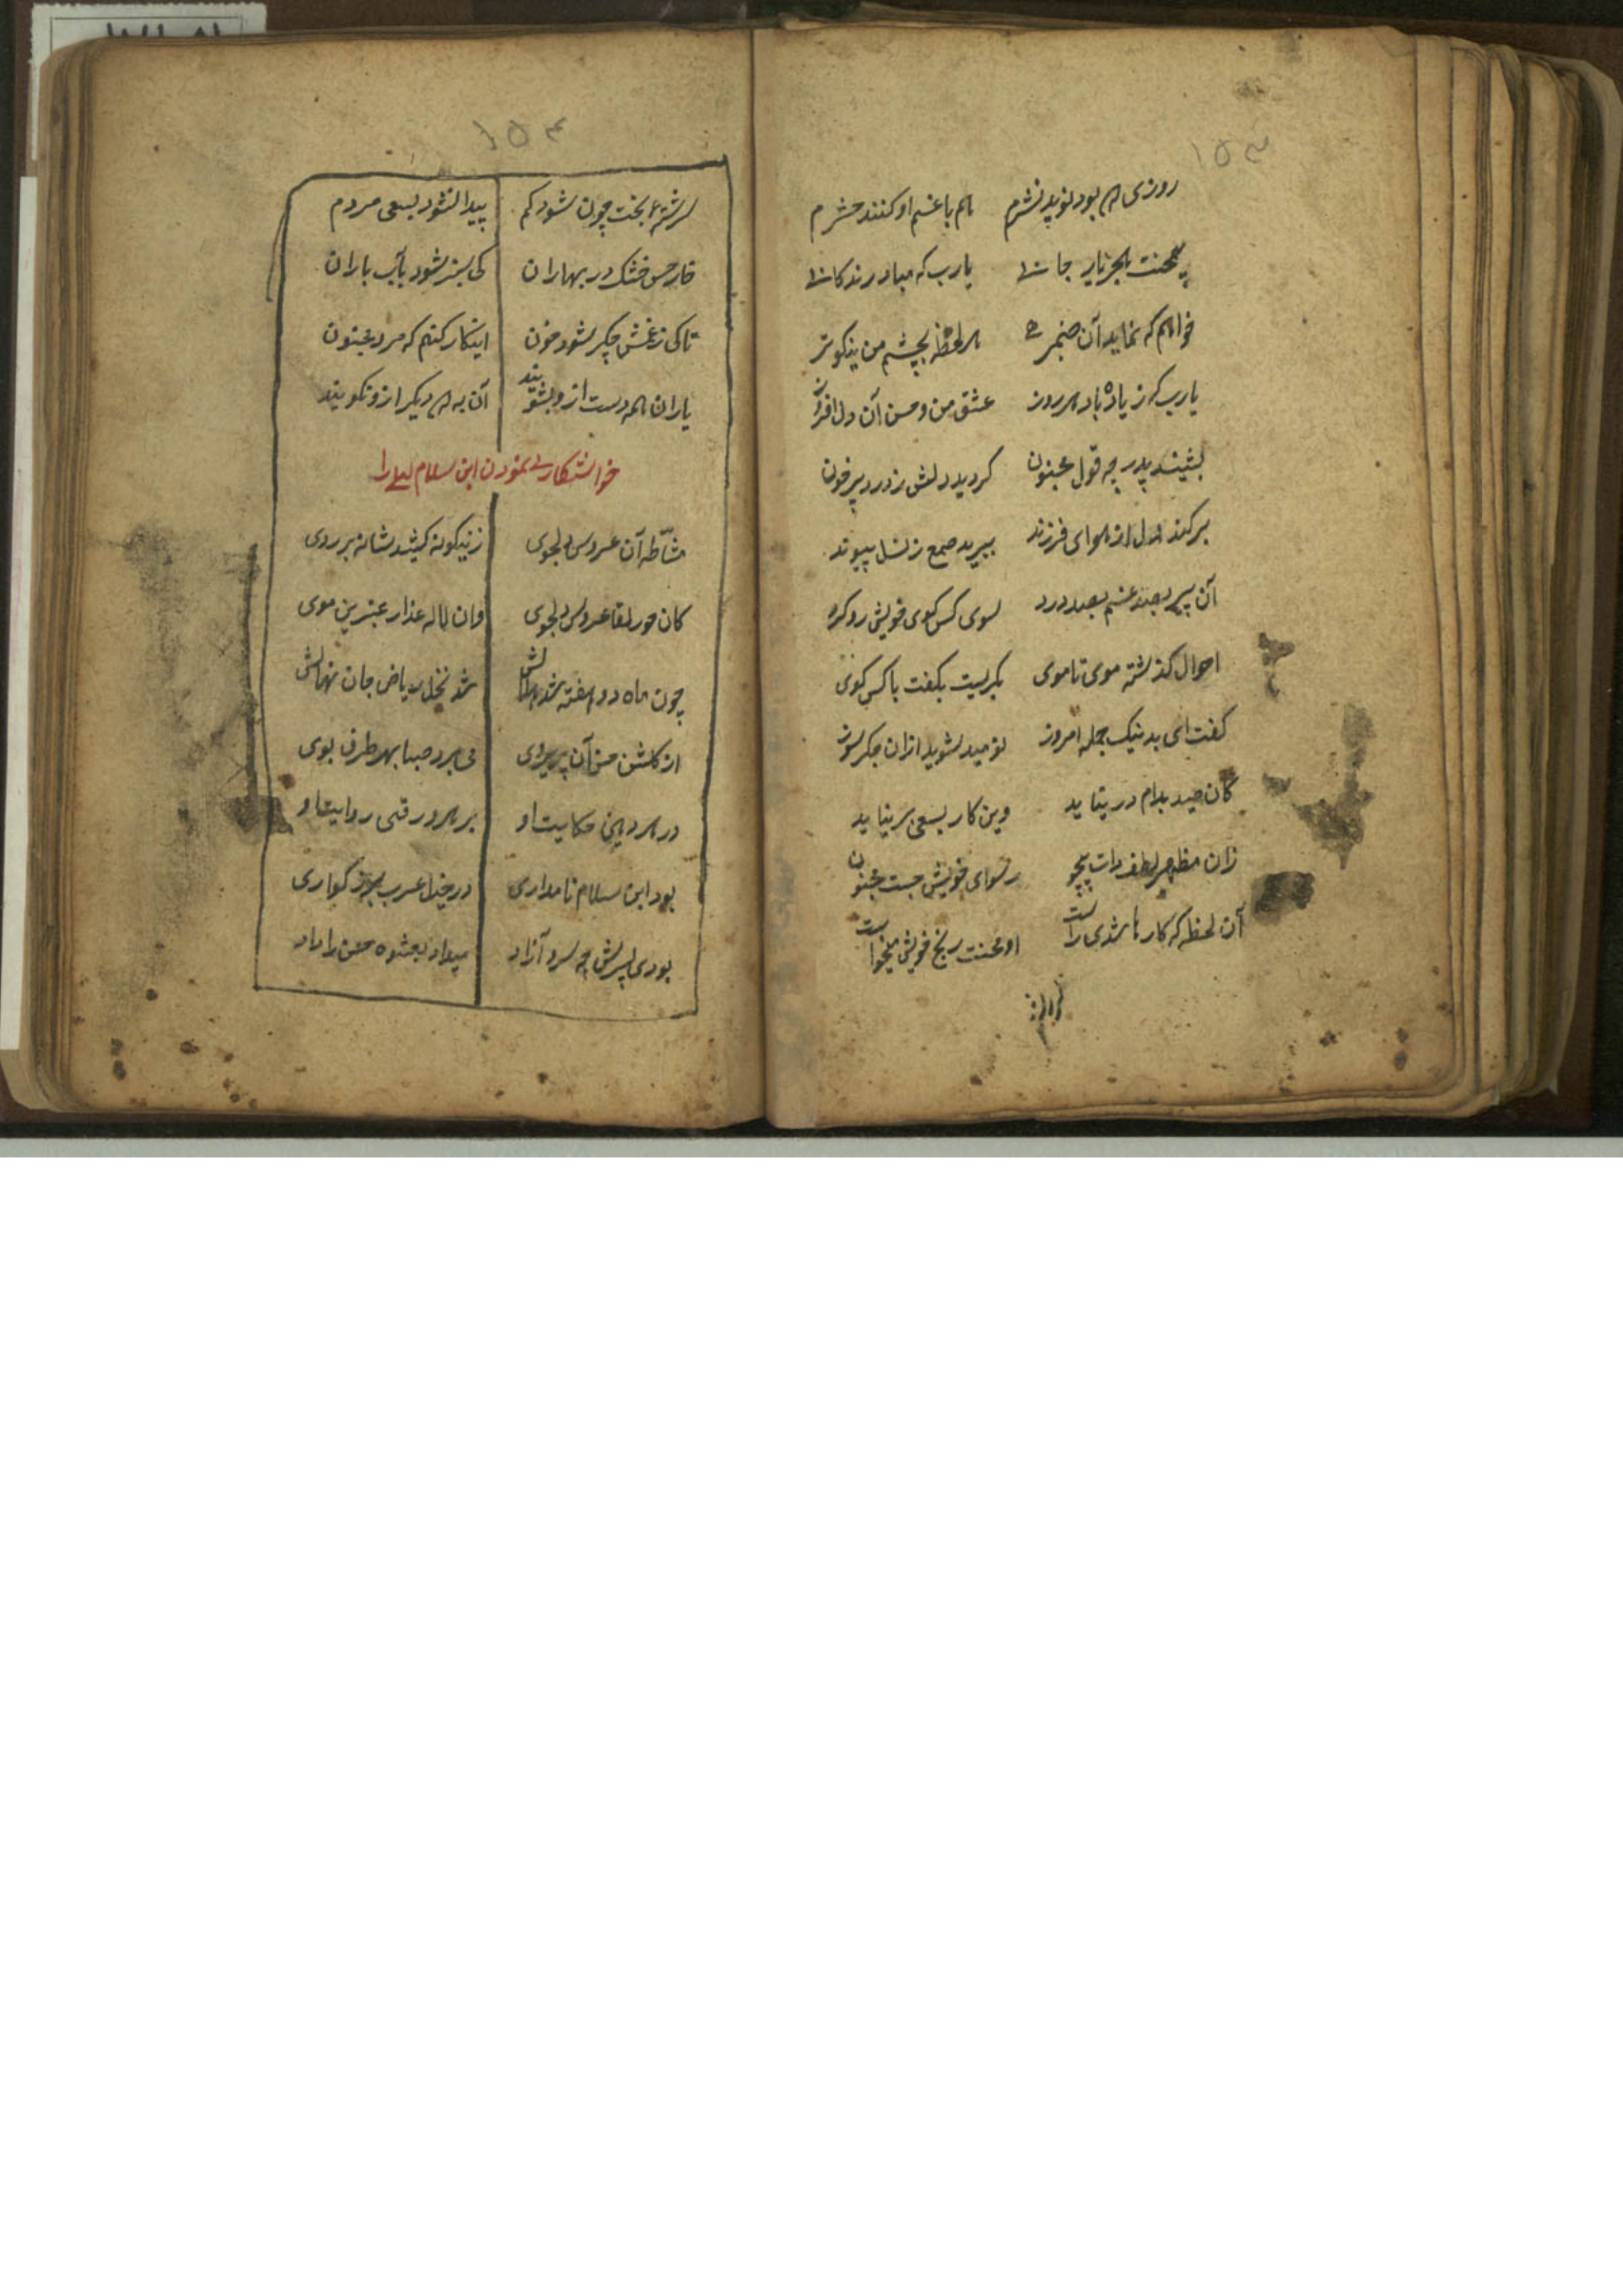 ۱۵۳
روزی که بود نوید نشرم هم با غم او کنند حشرم
بی محنت هجر یار جانی یارب که مباد زندگانی
خواهم که نماید آن صنم هر لحظه بچشم من نیکوتر
یارب که زیاده باد هر روز عشق من و حسن آن دل افروز
بشنید پدر چه قول مجنون کردید دلش ز درد پر خون
برکند دل از هوای فرزند ببرید طمع ز نسل پیوند
آن پیر بصد غم بصد درد سوی کس کوی خویش رو کرد
احوال کذشته موی تا موی بکریست بکفت با کس کوی
کفت ای بد نیک جمله امروز نومید شوید ازان جکر سوز
کان صید بدام در نیاید وین کار بسعی بر نیاید
زان مظهر لطف ذات بیچون رسوای خویش جست مجنون
آن لحظه که کارها شدی راست او محنت رنج خویش میخواست
۱۵۴
سررشتهٔ بخت چون شود کم پیدا نشود بسعی مردم
خار خس خشک در بهاران کی سبز شود بآب باران
تا کی ز غمش جکر شود خون اینکار کنم که مرد مجنون
یاران همه دست ازو بشویند آن به که دیکر ازو نکویند
خواستکاری نمودن ابن سلام لیلی را
مشّاطه آن عروس دلجوی زینکونه کشید شانه بر روی
کان حور لقا عروس دلجوی وان لاله عذار عنبرین موی
چون ماه دو هفته شد هلالش شد نخل ریاض جان نهالش
از کلشن حسن آن پریروی می برد صبا بهر طرف بوی
در هر دهنی حکایت او بر هر ورقی روایت او
بود ابن سلام نامداری در خیل عرب بزرکواری
بودی پسرش چه سرو آزاد میداد بعشوه حسن را داد